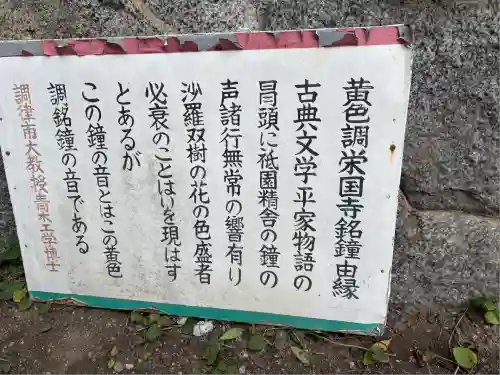 黄色調栄国寺銘鐘由縁
古典文学平家物語の
冒頭に祗園精舎の鐘の
声諸行無常の響有り
沙羅双樹の花の色盛者
必衰のことはりを現はす
とあるが
この鐘の音とはこの黄色
調銘鐘の音である
調律市大教授青木工学博士